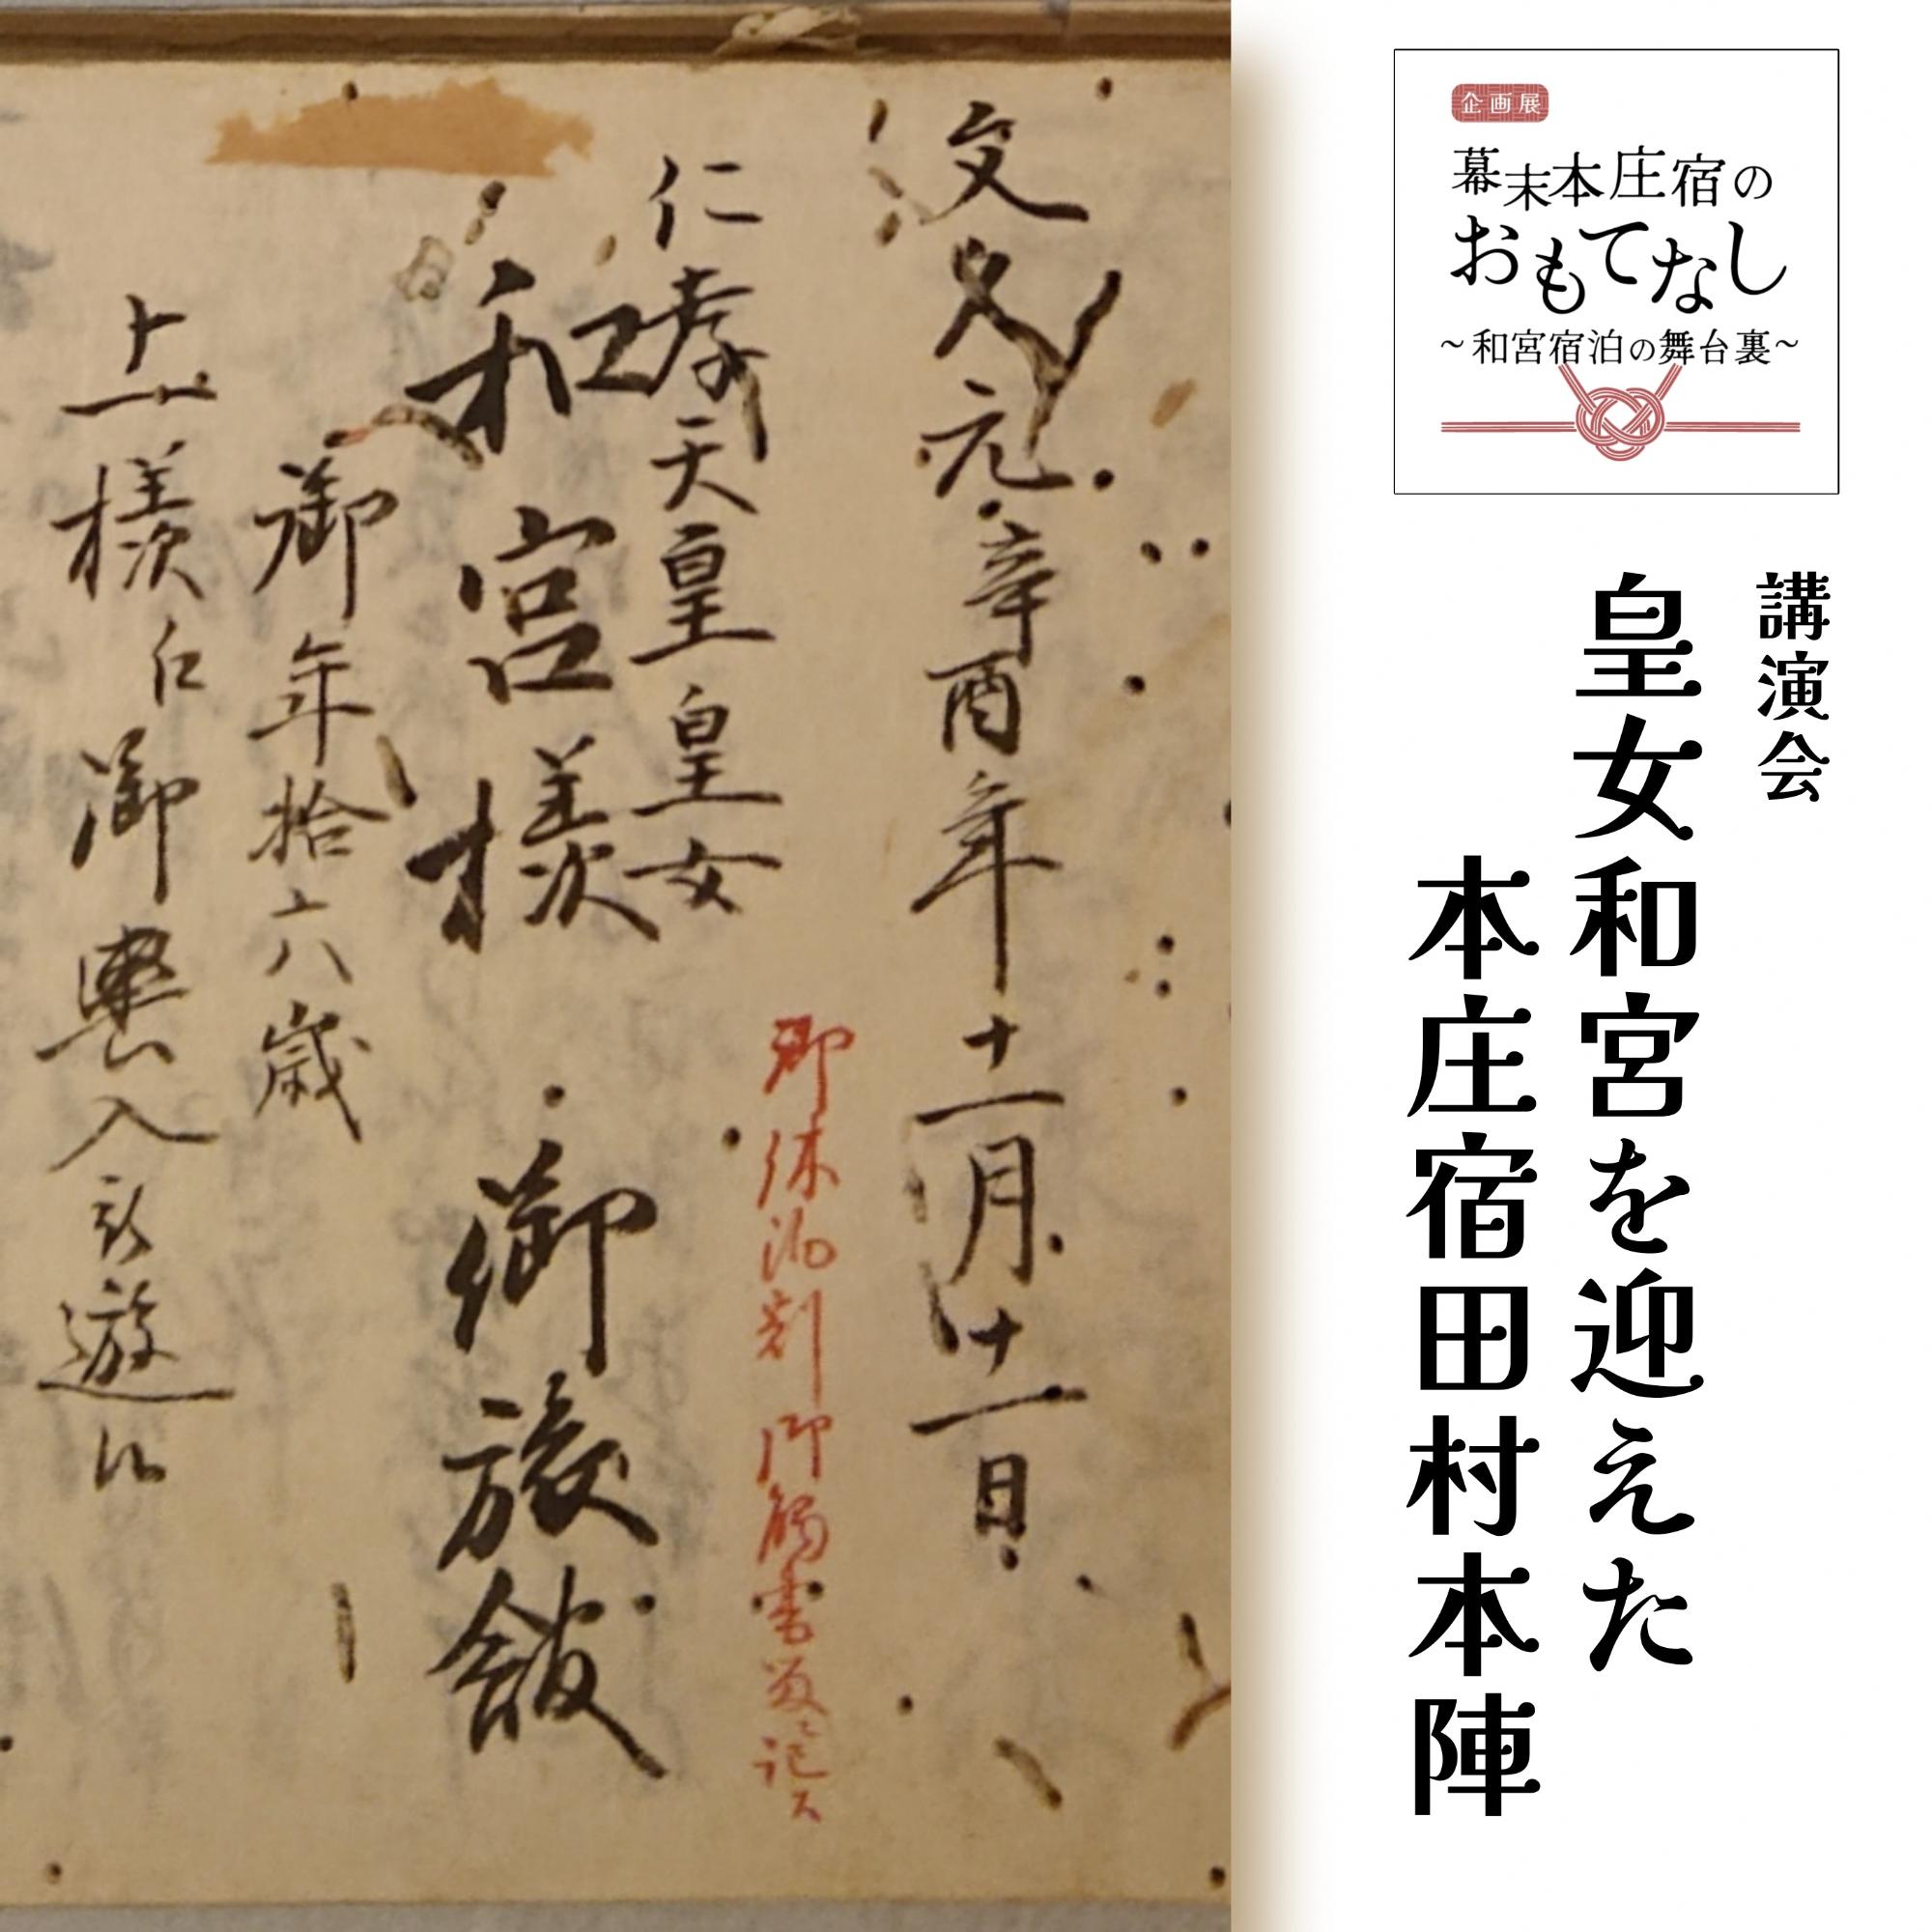 企画展
幕末本庄宿の
おもてなし
~和宮宿泊の舞台裏~
講演会
皇女和宮を迎えた
本庄宿田村本陣
文久元辛酉年十一月十一日
仁孝天皇皇女
和宮様 御旅館
御年拾六歳
上様 御輿入 遊